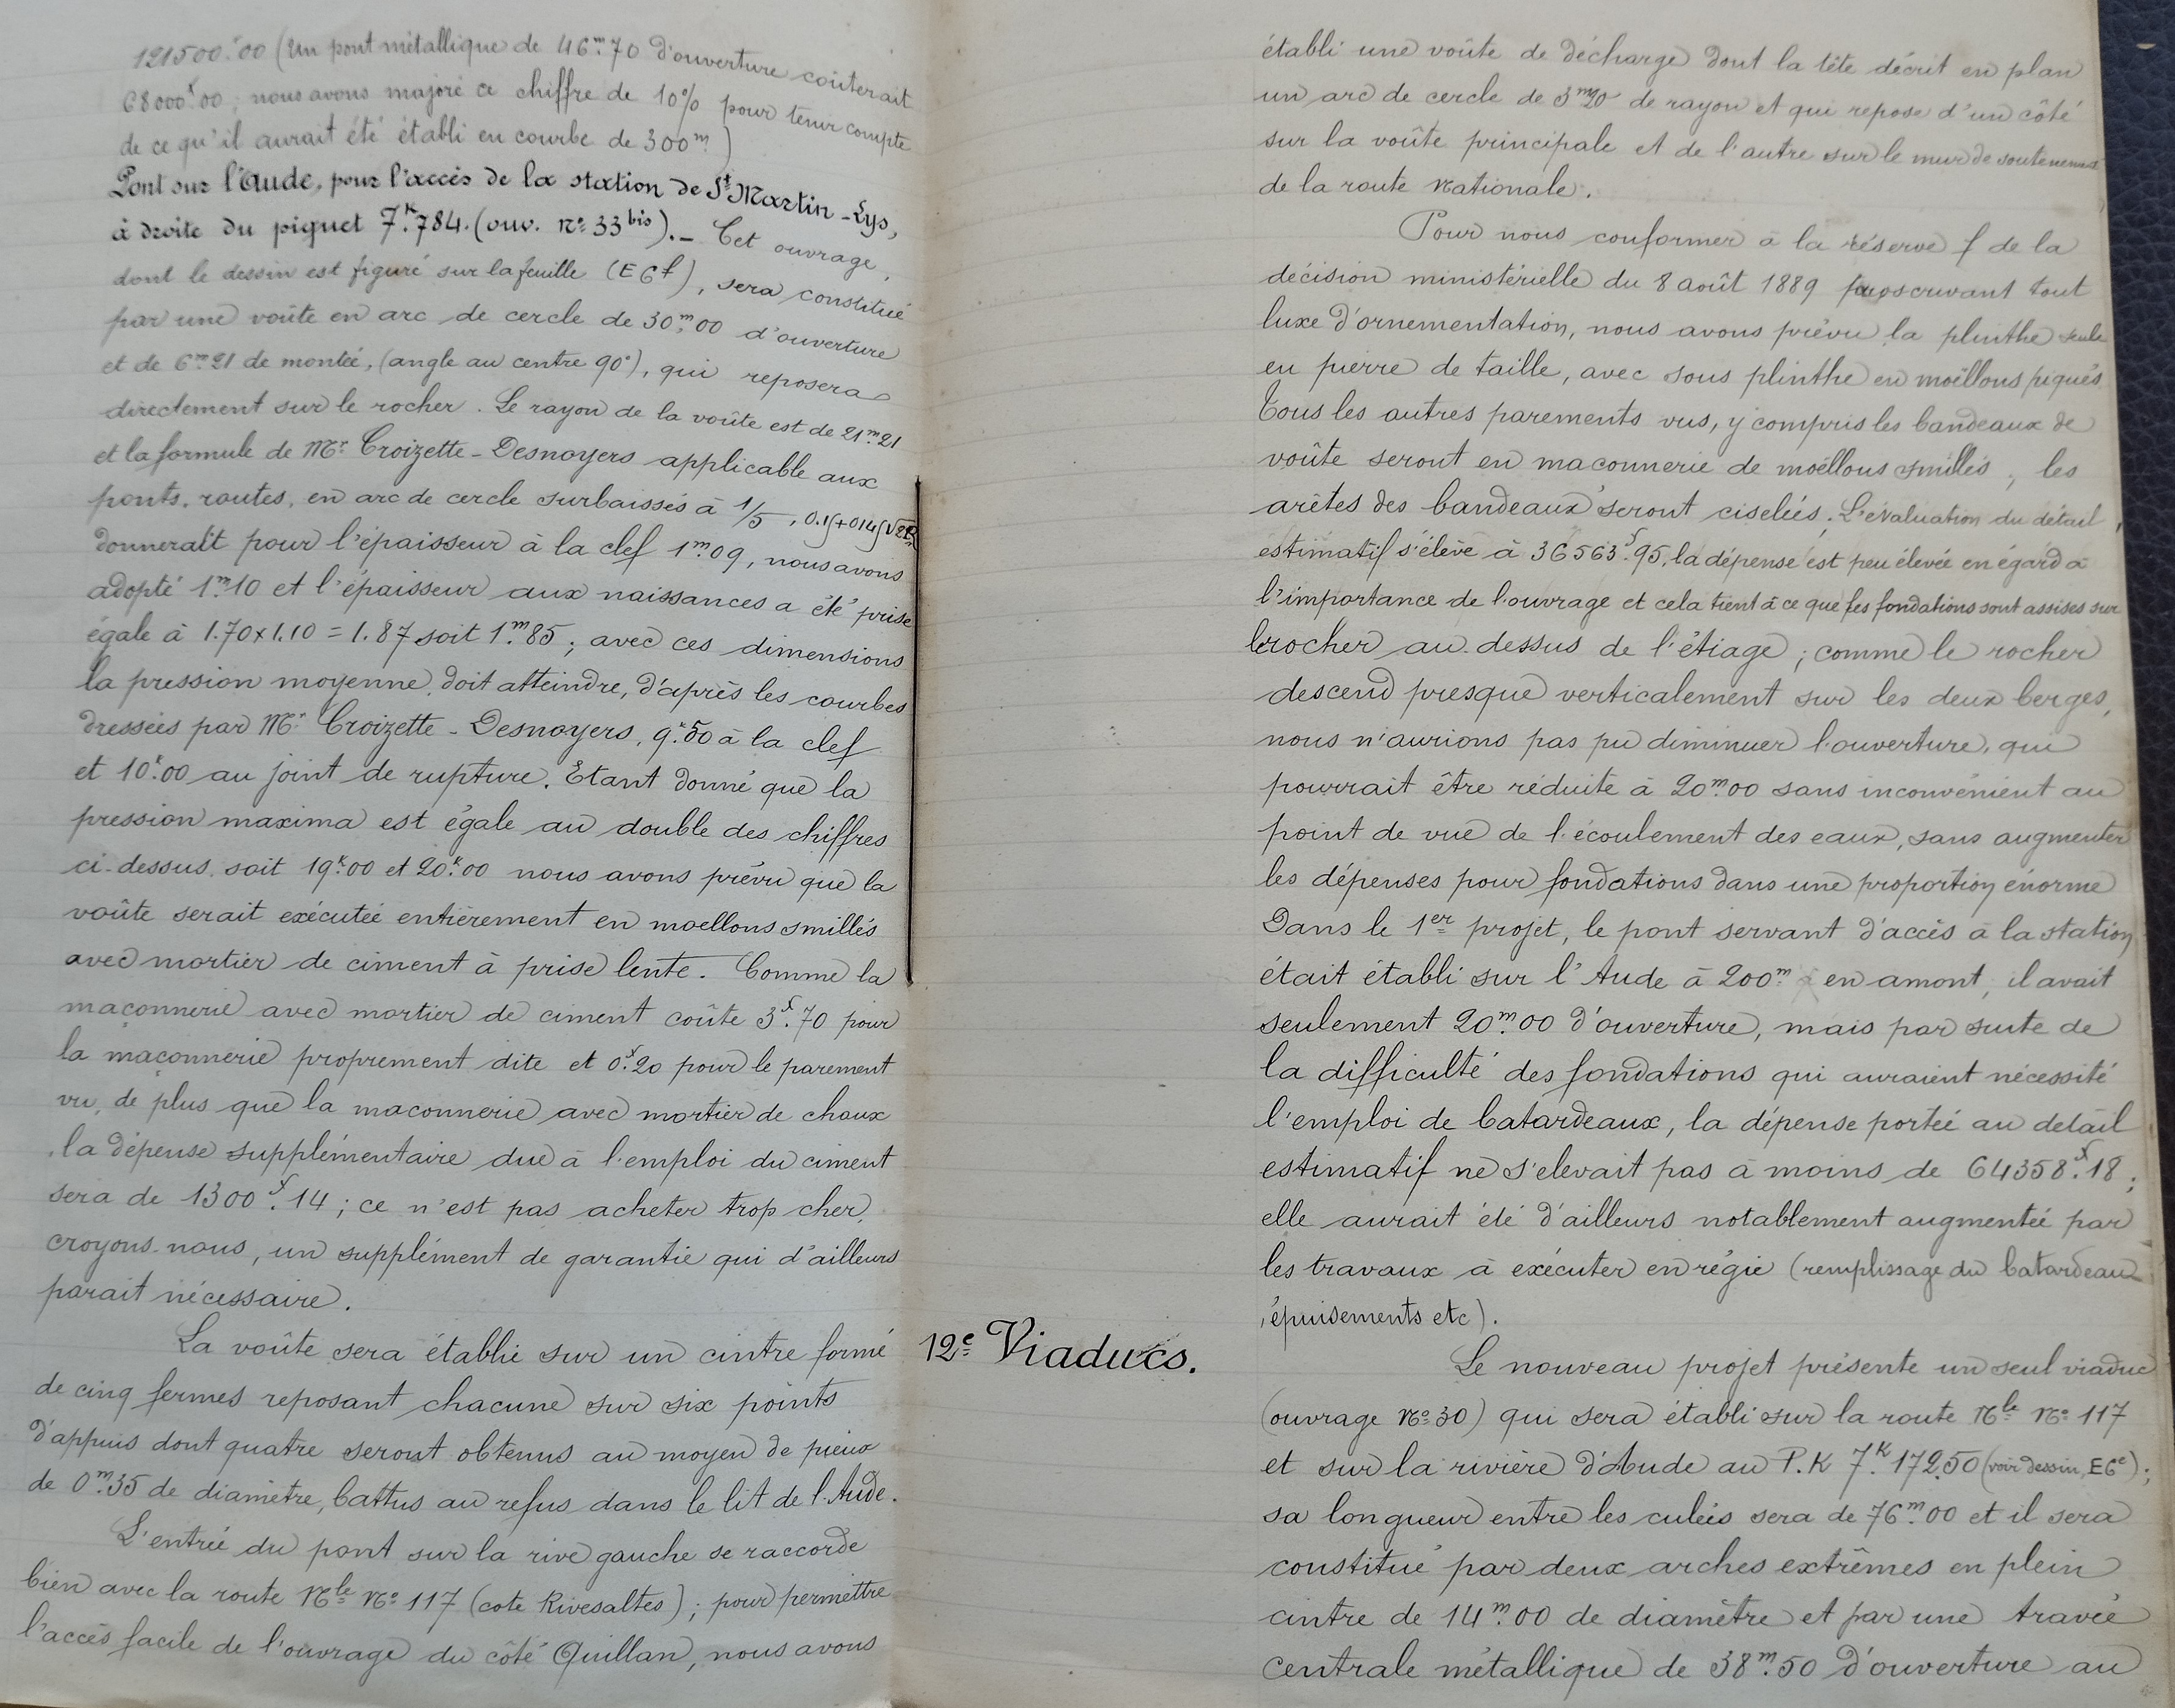 121500.f00 (Un pont métallique de 46m.70 d'ouverture coûterait
68000.f00; nous avons majoré ce chiffre de 10% pour tenir compte
de ce qu'il aurait été établi en courbe de 300m.)
Pont sur l'Aude, pour l'accès de la station de St Martin-Lys,
à droite du piquet 7K.784. (ouv. No 33bis)._ Cet ouvrage,
dont le dessin est figuré sur la feuille (E6f), sera constitué
par une voûte en arc de cercle de 30m.00 d'ouverture
et de 6m.21 de montée, (angle au centre 90°), qui reposera
directement sur le rocher. Le rayon de la voûte est de 21m.21
et la formule de Mr Croizette-Desnoyers applicable aux
ponts. routes, en arc de cercle surbaissés à 1/5, 0.15+0.145√2R
donnerait pour l'épaisseur à la clef 1m.09, nous avons
adopté 1m.10 et l'épaisseur aux naissances a été prise
égale à 1.70x1.10 = 1.87 soit 1m.85; avec ces dimensions
la pression moyenne doit atteindre, d'après les courbes
dressées par Mr Croizette-Desnoyers, 9k.50 à la clef
et 10k.00 au joint de rupture. Etant donné que la
pression maxima est égale au double des chiffres
ci-dessus, soit 19k.00 et 20k.00 nous avons prévu que la
voûte serait exécutée entièrement en moellons smillés
avec mortier de ciment à prise lente. Comme la
maçonnerie avec mortier de ciment coûte 3f.70 pour
la maçonnerie proprement dite et 0f.20 pour le parement
vu, de plus que la maçonnerie avec mortier de chaux
la dépense supplémentaire due à l'emploi du ciment
sera de 1300f.14; ce n'est pas acheter trop cher,
croyons-nous, un supplément de garantie qui d'ailleurs
parait nécessaire.
La voûte sera établie sur un cintre formé
de cinq fermes reposant chacune sur six points
d'appuis dont quatre seront obtenus au moyen de pieux
de 0m.35 de diamètre, battus au refus dans le lit de l'Aude.
L'entrée du pont sur la rive gauche se raccorde
bien avec la route Nle No 117 (coté Rivesaltes); pour permettre
l'accès facile de l'ouvrage du côté Quillan, nous avons
établi une voûte de décharge dont la tête décrit en plan
un arc de cercle de 3m20 de rayon et qui repose d'un côté
sur la voûte principale et de l'autre sur le mur de soutenement
de la route Nationale.
Pour nous conformer à la réserve f de la
décision ministérielle du 8 août 1889 proscrivant tout
luxe d'ornementation, nous avons prévu la plinthe seule
en pierre de taille, avec sous plinthe en moëllons piqués
Tous les autres parements vus, y compris les bandeaux de
voûte seront en maconnerie de moëllons smillés, les
arêtes des bandeaux seront ciselées. L'évaluation du détail
estimatif s'élève à 36563f.95, la dépense est peu élevée en égard à
l'importance de l'ouvrage et cela tient à ce que les fondations sont assises sur
le rocher au dessus de l'étiage; comme le rocher
descend presque verticalement sur les deux berges,
nous n'aurions pas pu diminuer l'ouverture, qui
pourrait être réduite à 20m.00 sans inconvénient au
point de vue de l'écoulement des eaux, sans augmenter
les dépenses pour fondations dans une proportion énorme
Dans le 1er projet, le pont servant d'accès à la station
était établi sur l'Aude à 200m. en amont, il avait
seulement 20m.00 d'ouverture, mais par suite de
la difficulté des fondations qui auraient nécessité
l'emploi de batardeaux, la dépense portée au détail
estimatif ne s'elevait pas à moins de 64358f.18;
elle aurait été d'ailleurs notablement augmentée par
les travaux à exécuter en régie (remplissage du batardeau
épuisements etc).
12e Viaducs.
Le nouveau projet présente un seul viaduc
(ouvrage No 30) qui sera établi sur la route Nle No 117
et sur la rivière d'Aude au P.K 7K.172.50 (voir dessin E6e);
sa longueur entre les culées sera de 76m.00 et il sera
constitué par deux arches extrêmes en plein
cintre de 14m.00 de diamètre et par une travée
centrale métallique de 38m.50 d'ouverture au